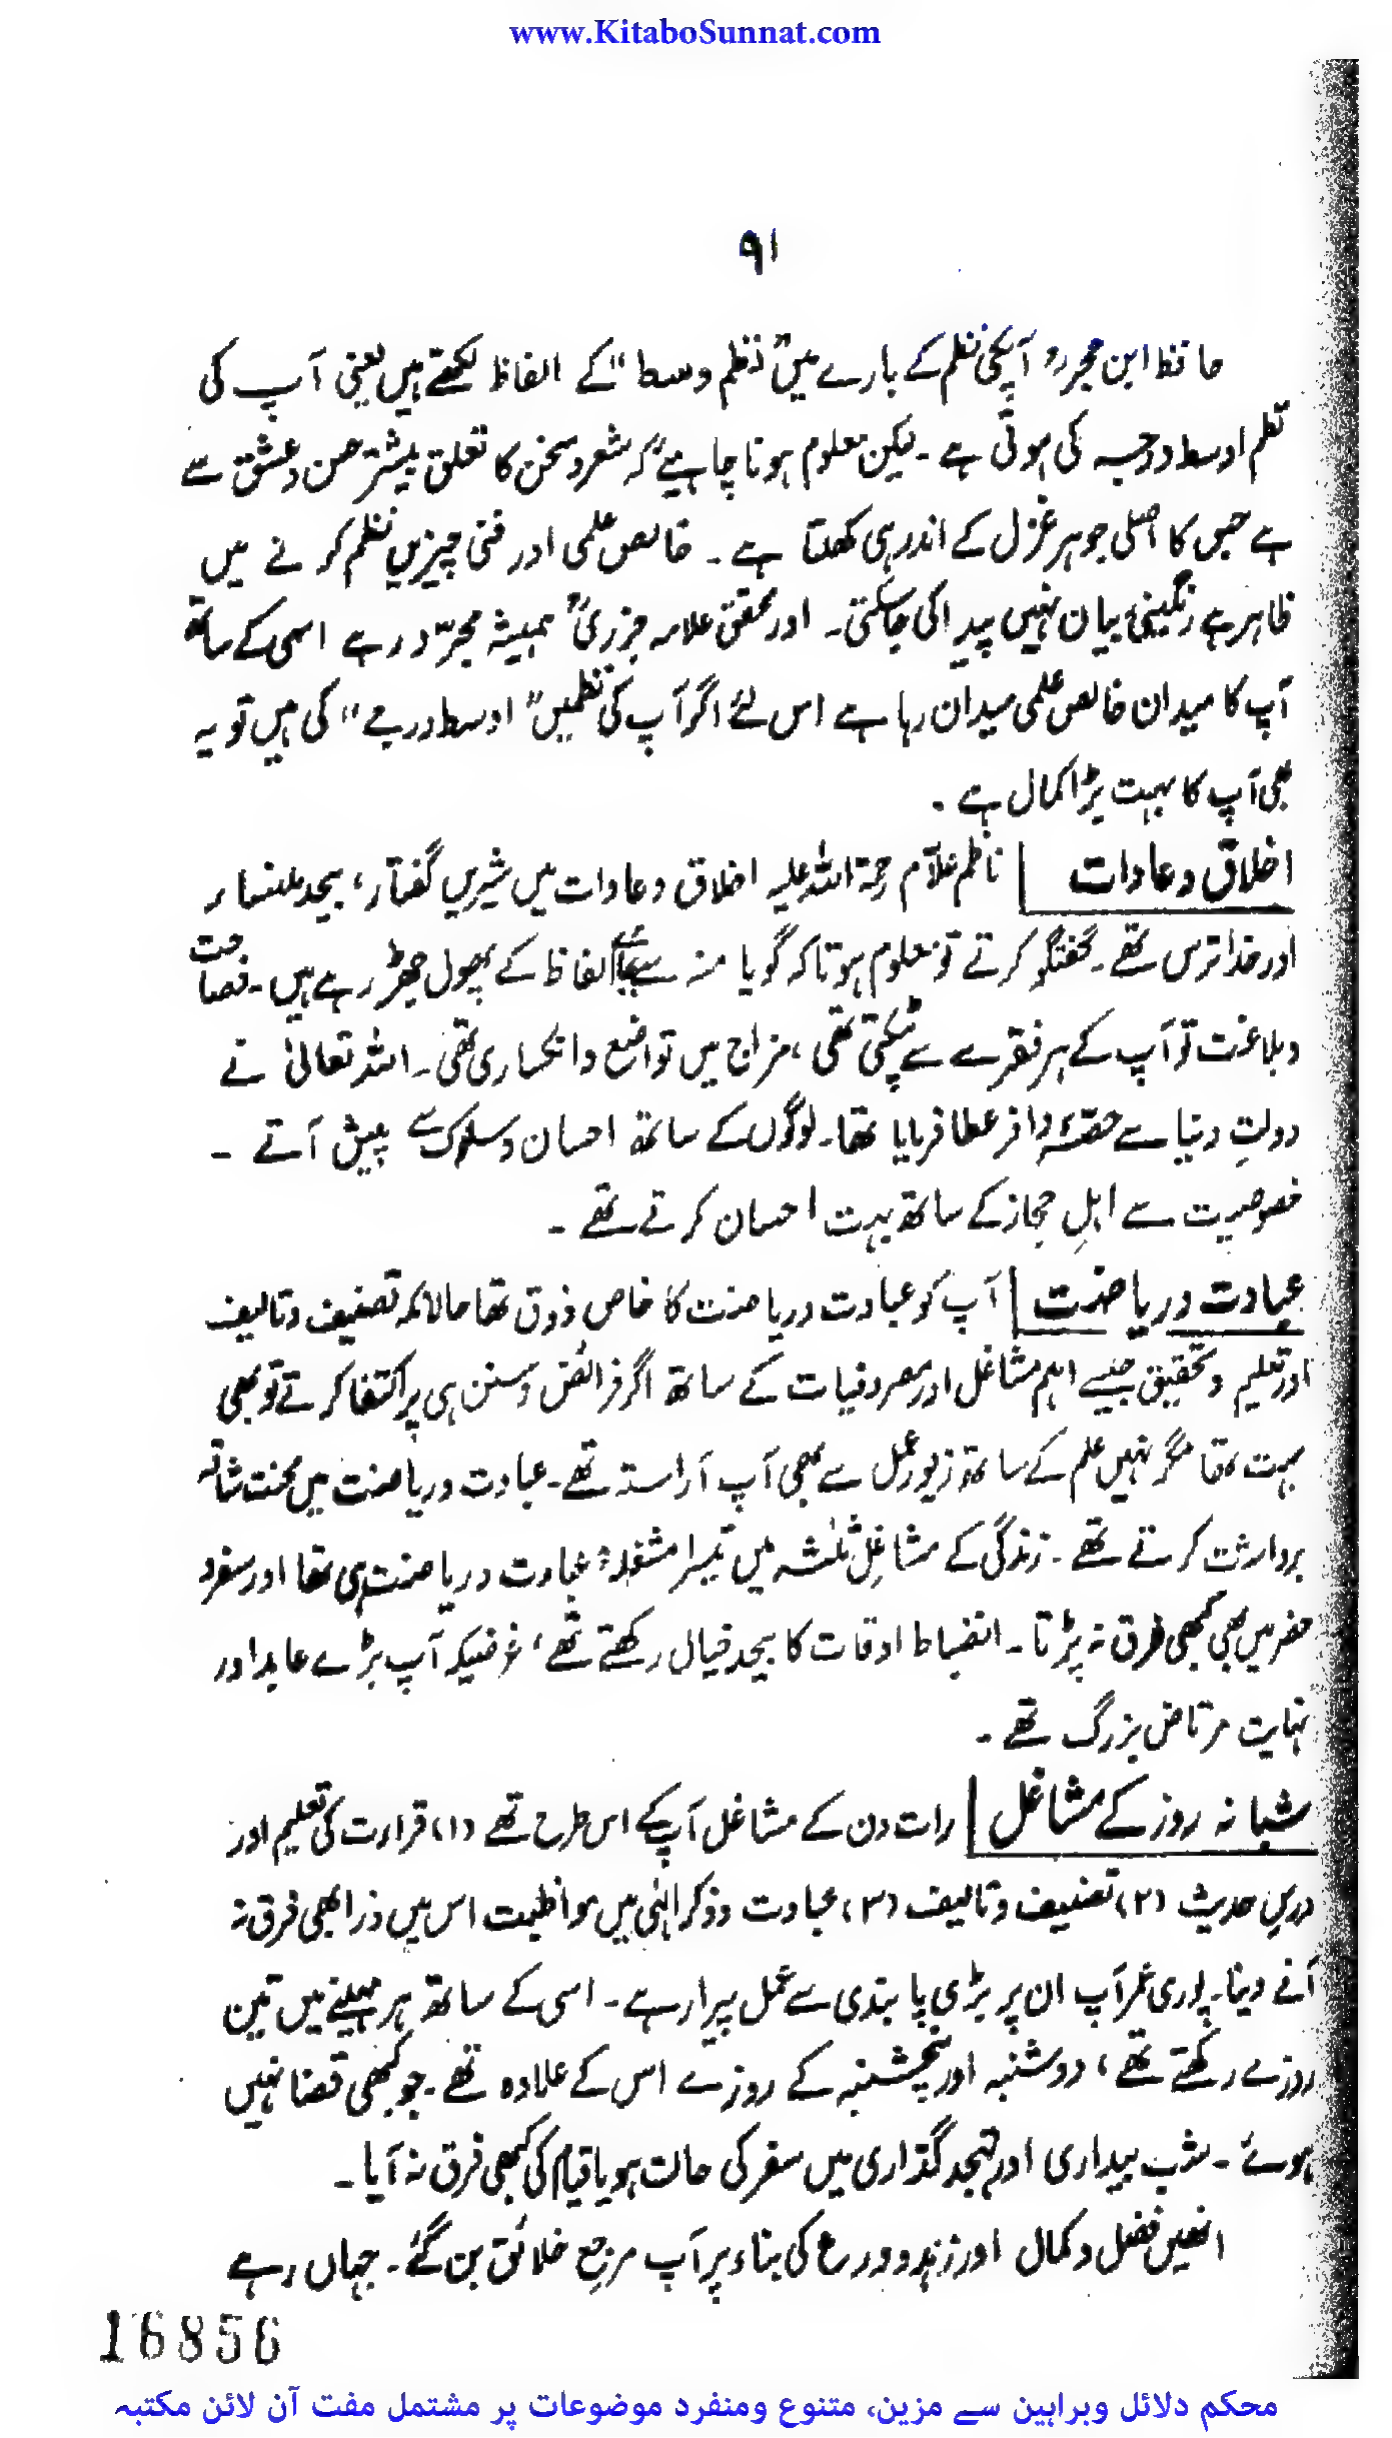 www.KitaboSunnat.com
۹۱
حافظ ابن حجرؒ آپکی نظم کے بارے میں "نظم وسط" کے الفاظ لکھتے ہیں یعنی آپ کی
نظم اوسط درجہ کی ہوتی ہے ۔ لیکن معلوم ہونا چاہیے کہ شعر و سخن کا تعلق بیشتر حسن و عشق سے
ہے جس کا اصلی جوہر غزل کے اندر ہی کھلتا ہے ۔ خالص علمی اور فنی چیزیں نظم کرنے میں
ظاہر ہے رنگینیٔ بیان نہیں پیدا کی جاسکتی۔ اور محقق علامہ جزریؒ ہمیشہ مجرّد رہے اسی کے ساتھ
آپ کا میدان خالص علمی میدان رہا ہے اس لئے اگر آپ کی نظمیں "اوسط درجے" کی ہیں تو یہ
بھی آپ کا بہت بڑا کمال ہے ۔
اخلاق و عادات | ناظم علّام رحمۃ اللہ علیہ اخلاق و عادات میں شیریں گفتار، بیحد ملنسار
اور خدا ترس تھے ۔ گفتگو کرتے تو معلوم ہوتا کہ گویا منہ سے بجائے الفاظ کے پھول جھڑ رہے ہیں ۔ فصاحت
و بلاغت تو آپ کے ہر فقرے سے ٹپکتی تھی ، مزاج میں تواضع و انکساری تھی ۔ اللہ تعالیٰ نے
دولتِ دنیا سے حصّۂ وافر عطا فرمایا تھا ۔ لوگوں کے ساتھ احسان و سلوک سے پیش آتے ۔
خصوصیت سے اہلِ حجاز کے ساتھ بہت احسان کرتے تھے ۔
عبادت و ریاضت | آپ کو عبادت و ریاضت کا خاص ذوق تھا حالانکہ تصنیف و تالیف
اور تعلیم و تحقیق جیسے اہم مشاغل اور مصروفیات کے ساتھ اگر فرائض و سنن ہی پر اکتفا کرتے تو بھی
بہت تھا مگر نہیں علم کے ساتھ زیور عمل سے بھی آپ آراستہ تھے ۔ عبادت و ریاضت میں محنت شاقہ
برداشت کرتے تھے ۔ زندگی کے مشاغلِ ثلٰثہ میں تیسرا مشغلہ عبادت و ریاضت ہی تھا اور سفر و
حضر میں بھی کبھی فرق نہ پڑتا ۔ انضباط اوقات کا بیحد خیال رکھتے تھے ، غرضیکہ آپ بڑے عابد اور
نہایت مرتاض بزرگ تھے ۔
شبانہ روز کے مشاغل | رات دن کے مشاغل آپکے اس طرح تھے (۱) قراءت کی تعلیم اور
درسِ حدیث (۲) تصنیف و تالیف (۳) عبادت و ذکر الٰہی میں مواظبت اس میں ذرا بھی فرق نہ
آنے دینا ۔ پوری عمر آپ ان پر بڑی پابندی سے عمل پیرا رہے ۔ اسی کے ساتھ ہر مہینے میں تین
روزے رکھتے تھے ، دوشنبہ اور پنچشنبہ کے روزے اس کے علاوہ تھے ۔ جو کبھی قضا نہیں
ہوئے ۔ شب بیداری اور تہجد گذاری میں سفر کی حالت ہو یا قیام کی کبھی فرق نہ آیا ۔
انھیں فضل و کمال اور زہد و ورع کی بناء پر آپ مرجع خلائق بن گئے ۔ جہاں رہے
16856
محکم دلائل وبراہین سے مزین، متنوع ومنفرد موضوعات پر مشتمل مفت آن لائن مکتبہ